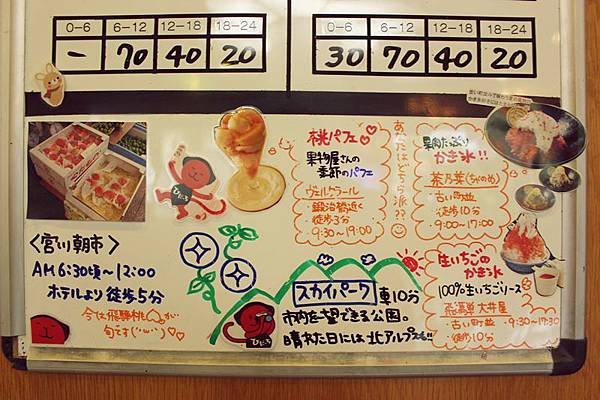 0-6 6-12 12-18 18-24
- 70 40 20
0-6 6-12 12-18 18-24
30 70 40 20
〈宮川朝市〉
AM6:30頃〜12:00
ホテルより徒歩5分
今は飛騨桃が
旬です(´･ω･`)♡♡
桃パフェ♡
果物屋さんの
季節のパフェ
ヴェルクラール
・鍛治橋近く
・徒歩3分
・9:30〜19:00
あなたはどちら派??
果肉たっぷり
かき氷!!
茶乃菜(ちゃのめ)
・古い町並
・徒歩10分
・9:00〜17:00
生いちごの
かき氷
100%生いちごソース
飛騨梨 大井屋
・古い町並 ・9:30〜17:30
・徒歩10分
スカイパーク 車10分
市内を一望できる公園。
晴れた日には北アルプスも!!
ひだっち
ひだっち